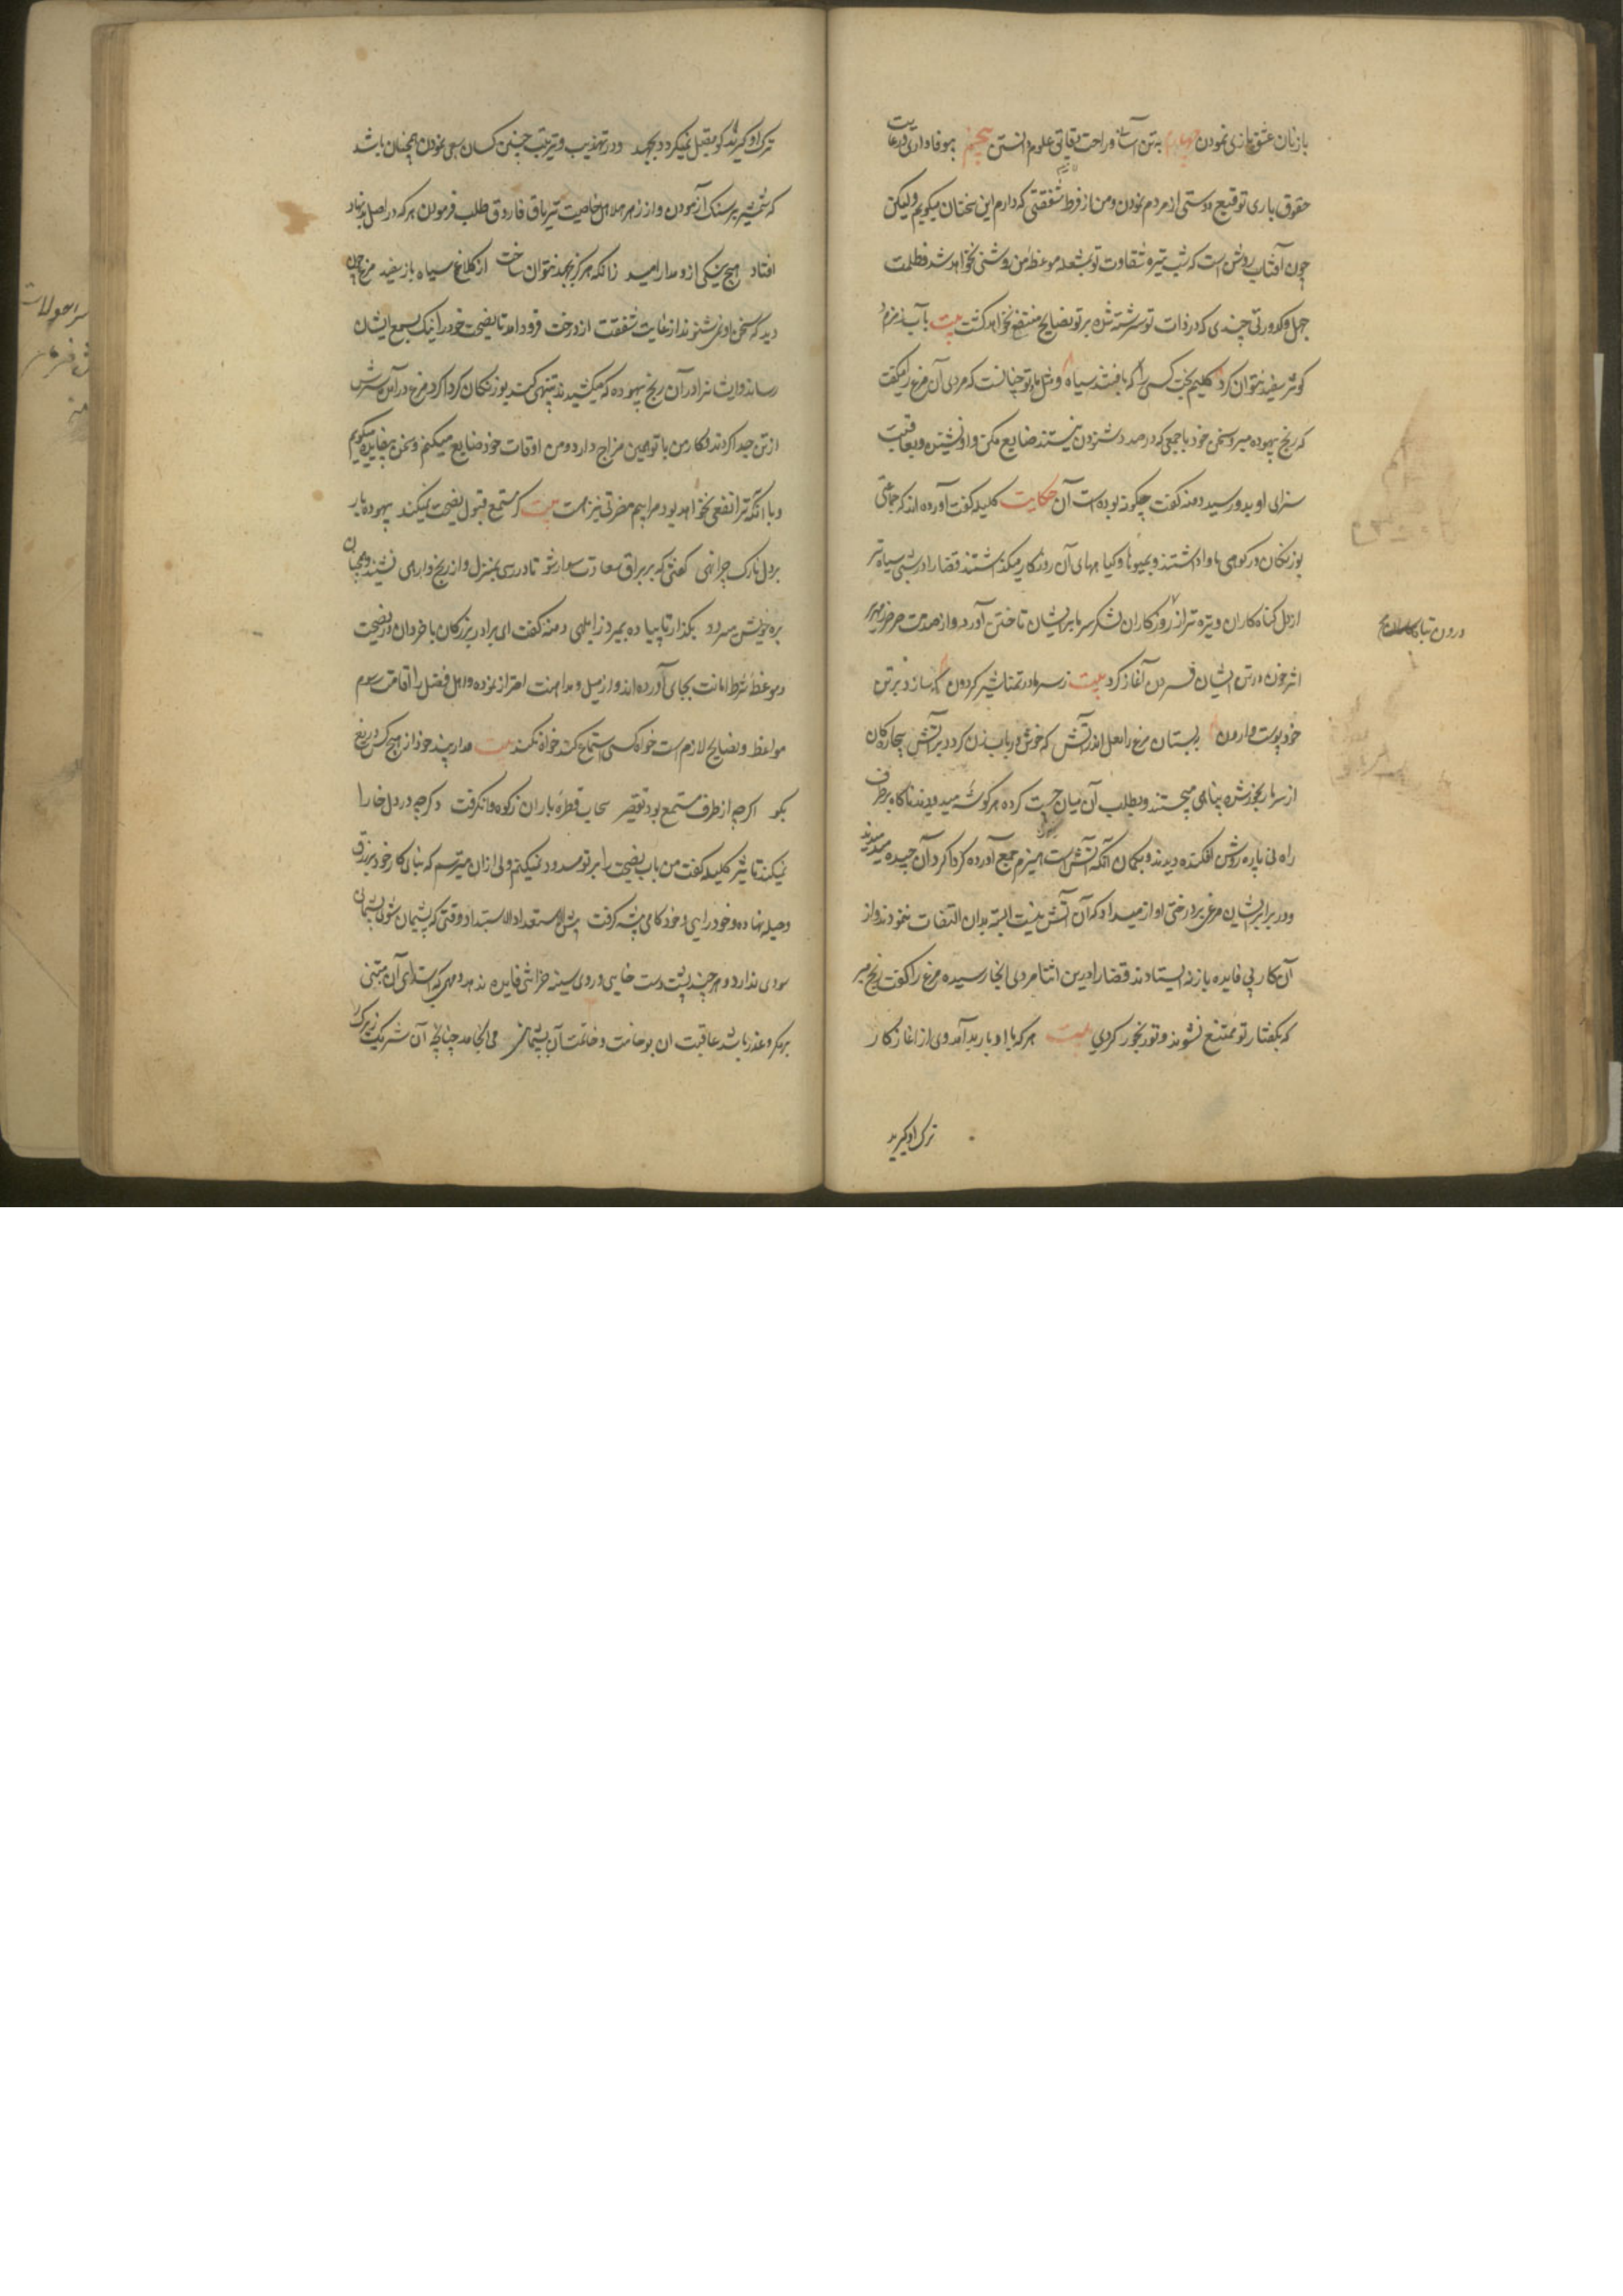 بازنان عشق بازی نمودن چهارم به تن آسانی و راحت دقایق علوم دانستن پنجم بی وفاداری و رعایت
حقوق یاری توقیع دوستی از مردم نمودن و من از فرط شفقتی که دارم این سخنان میکویم ولیکن
چون آفتاب روشن است که شب تیره شقاوت تو بشعله موعظه من روشنی نخواهد شد و ظلمت
جهل و کدورتی چندی که در ذات تو سرشته شده بر تو نصایح منتفع نخواهد کشت بیت بآب زمزم و
کوثر سفید نتوان کرد کلیم بخت کسی را که بافتند سیاه و مثل ما و تو چنانست که مردی آن مرغ را میکفت
که رنج بیهوده مبر و سخن خود با جمعی که در صدد شنودن نیستند ضایع مکن و او نشنیده و بعاقبت
سزای او بدو رسید دمنه کفت چکونه بوده است آن حکایت کلیله کفت آورده اند که جماعتی
بوزنکان در کوهی ماوا داشتند و بمیوها و کیاههای آن روزکار میکذاشتند قضا را در شبی سیاه تر
از دل کناه کاران و تیره تر از روزکاران لشکر سرما بر ایشان تاختن آورد و از صدمت صرصر زمهریر
اثر خون در تن ایشان فسردن آغاز کرد بیت ز سرما در تمنا شیر کردون که سازد بر تن
خود پوست وارون ببستان مرغ را لعل اندر آتش که خوش در باب زن کردد بر آتش بیچارکان
از سرما رنجور شده پناهی میجستند و بطلب آن میان چست کرده هر کوشه میدویدند ناکاه بر طرف
راه نی پاره روشن افکنده دیدند و بکمان آنکه آتش است هیزم جمع آورده کرداکرد آن چیده میدمیدند
و در برابر ایشان مرغی بر درختی آواز میداد که آن آتش نیست البته بدان التفات ننمودند و از
آن کار بی فایده باز نه ایستادند قضا را درین اثنا مردی آنجا رسیده مرغ را کفت رنج مبر
که بکفتار تو ممتنع نشوند و تو رنجور کردی بیت هر که با ادبار بد آمد وی از آغاز کار
ترک او کیرید
درون تباه کاران
ترک او کیرید کو مقبل نمیکردد بجهد و در تهذیب و ترتیب چنین کسان سعی نمودن همچنان باشد
که شمشیر بر سنک آزمودن و از زهر هلاهل خاصیت تریاق فاروق طلب فرمودن هر که در اصل بد نهاد
افتاد هیچ نیکی ازو مدار امید زانکه هرکز بجهد نتوان ساخت از کلاغ سیاه باز سفید مرغ چون
دید که سخن او نمی شنوند از غایت شفقت از درخت فرود آمد تا نصیحت خود را نیک بسمع ایشان
رساند و ایشانرا در آن رنج بیهوده که میکشیدند تنبهی کند بوزنکان کرداکرد مرغ درآمده سرش
از تن جدا کردند و کار من با تو همین مزاج دارد و من اوقات خود ضایع میکنم و سخن بیفایده میکویم
و با آنکه ترا نفعی نخواهد بود مرا بیم مضرتی نیز هست بیت کر مستمع قبول نصیحت نمیکند بیهوده بار
بر دل نازک چرا نهی کفتی که بر براق سعادت سوار شو تا در رسی بمنزل و از رنج وارهی نشنید و همچنان
بره خویش میرود بکذار تا پیاده بمیرد ز ابلهی دمنه کفت ای برادر بزرکان با خردان در نصیحت
و موعظه شرط امانت بجای آورده اند و از میل و مداهنت احتراز نموده و اهل فضل را اقامت رسوم
مواعظ و نصایح لازم است خواه کسی استماع کند خواه نکند بیت مدار پند خود از هیچ کس دریغ
بکو اکر چه از طرف مستمع بود تقصیر سحاب قطره باران ز کوه وا نکرفت و کر چه در دل خارا
نمیکند تاثیر کلیله کفت من باب نصیحت را بر تو مسدود نمیکنم ولی از آن میترسم که بنای کار خود بر زرق
و حیله نهاده و خود رایی و خود کامی پیشه کرفته بئس الاستعداد الاستبداد و وقتی که پشیمان شوی پشیمانی
سودی ندارد و هر چند پشت دست خایی و روی سینه خراشی فایده ندهد و مهمی که ابتدای آن مبتنی
بر مکر و عذر باشد عاقبت آن بوخامت و خاتمت آن پشیمانی می انجامد چنانچه آن شریک زیرک را